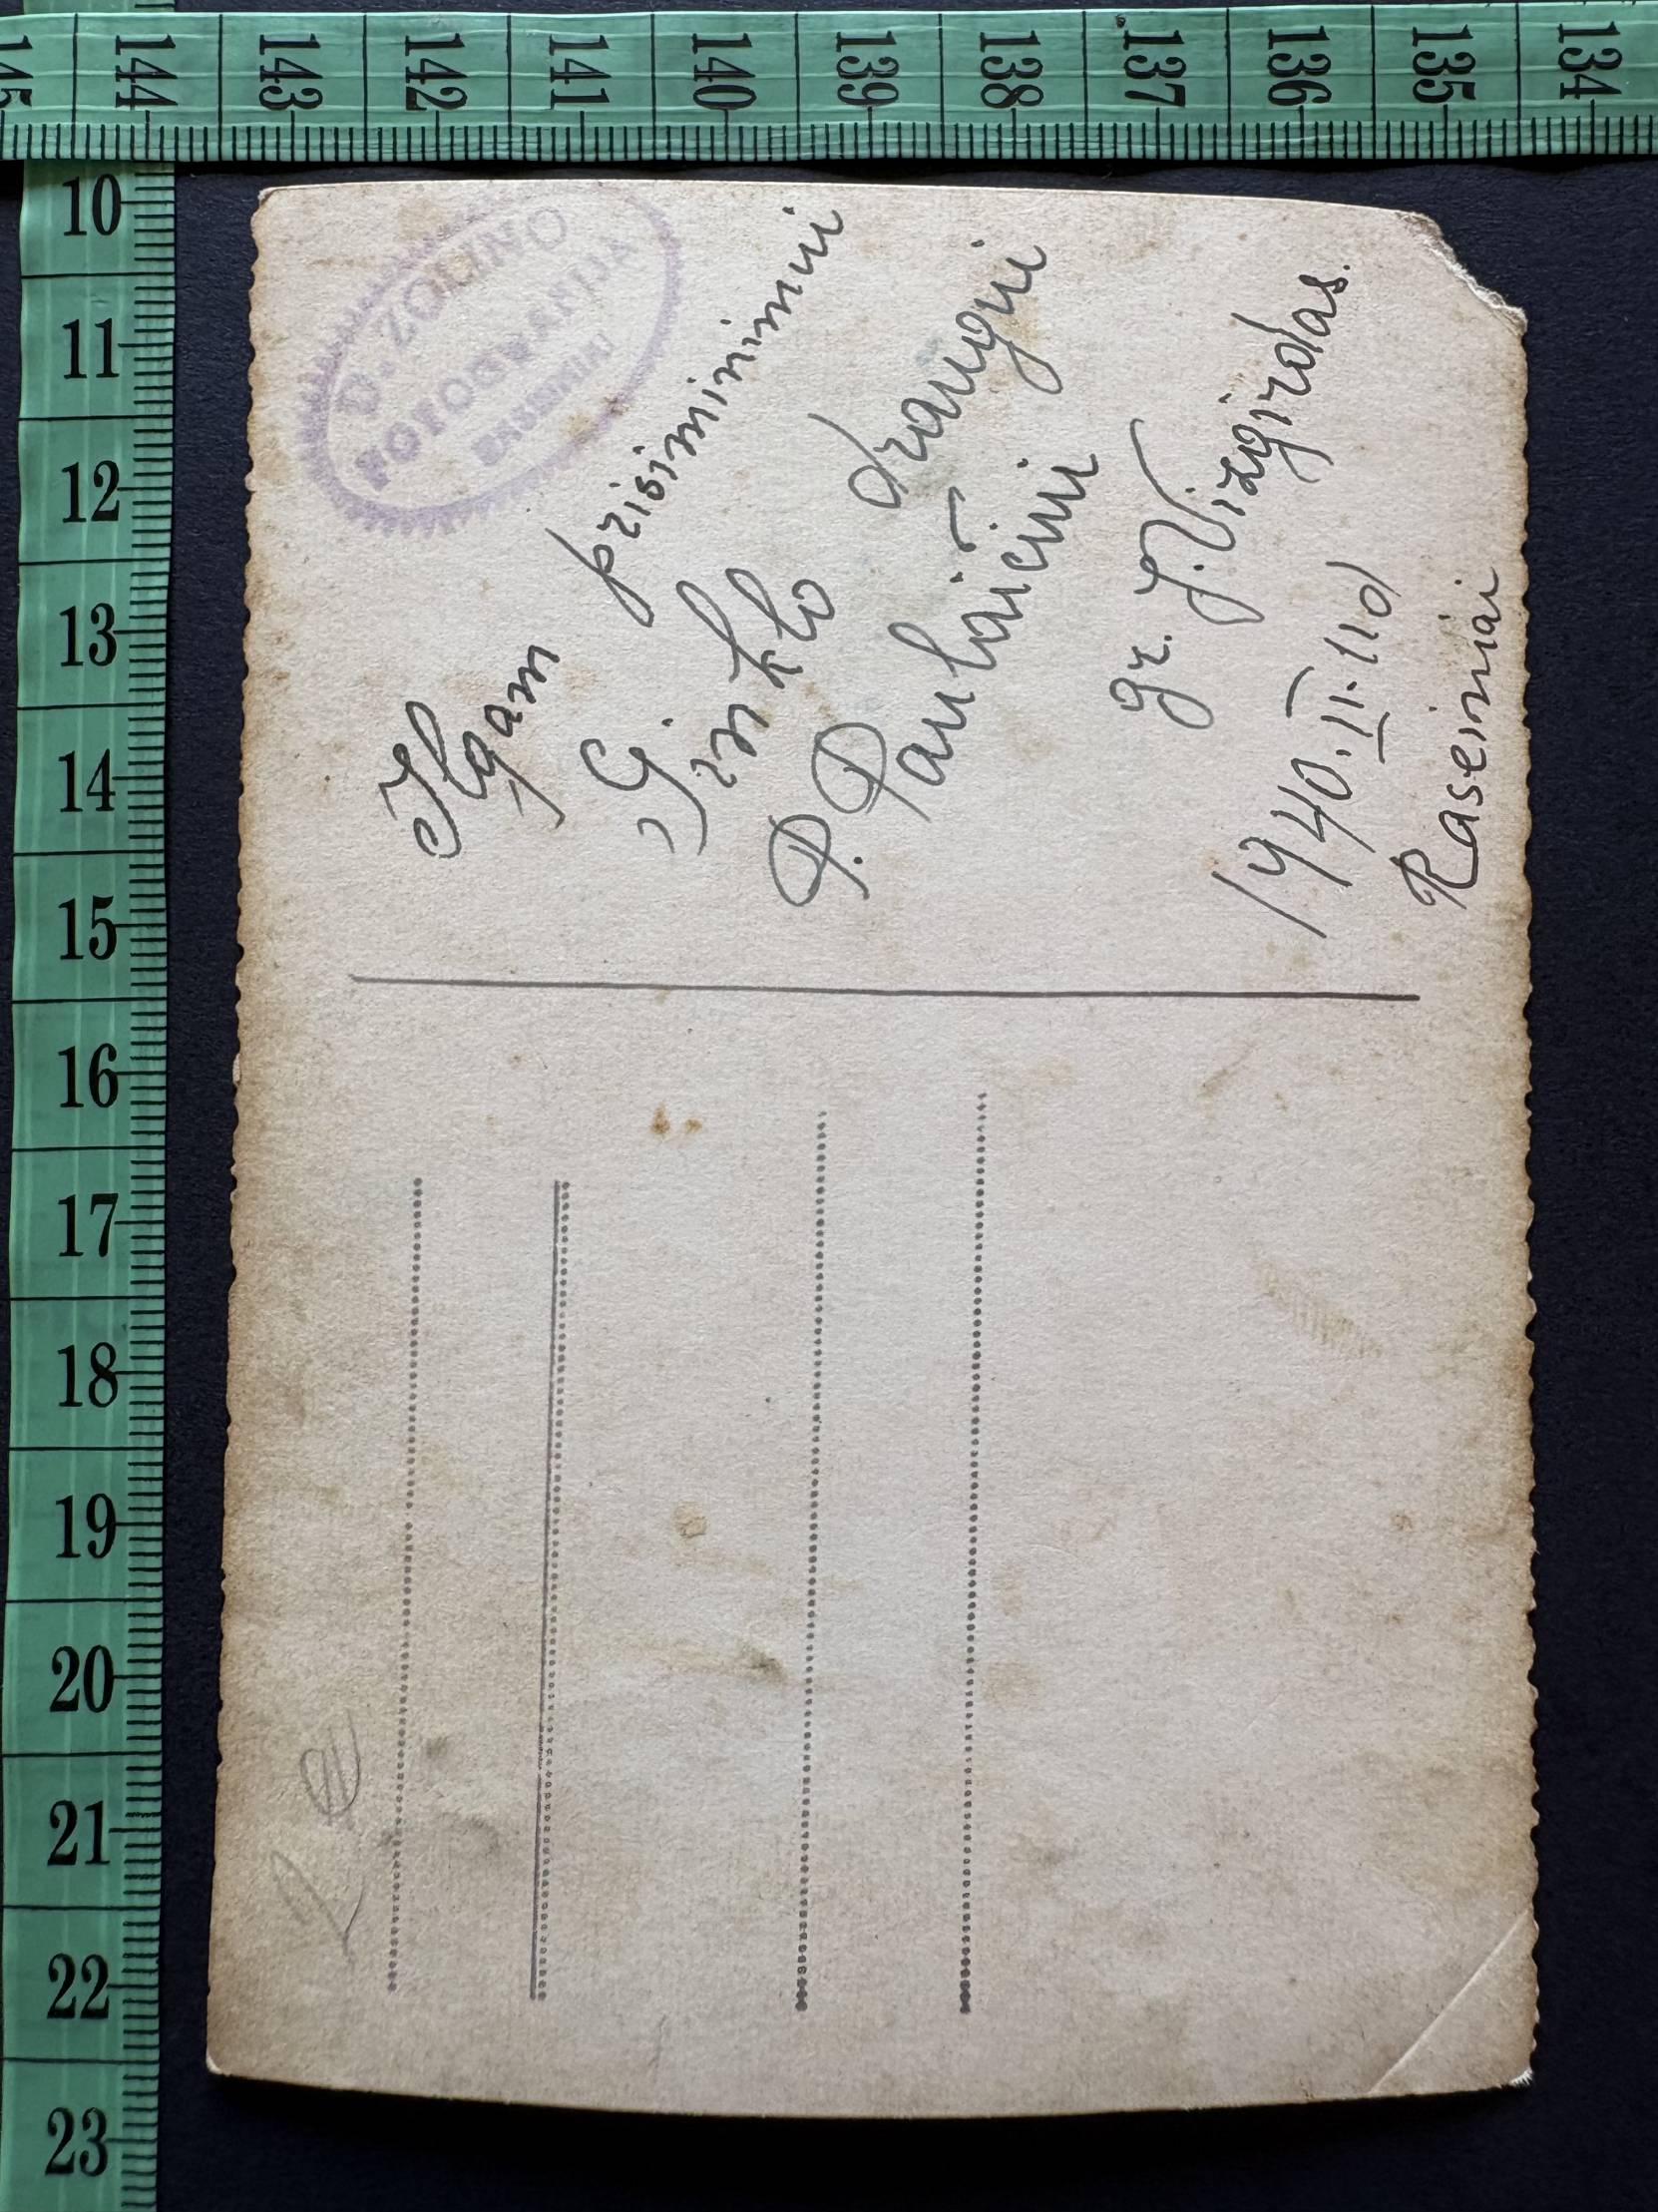 144 143 142 141 140 139 138 137 136 135 134
10
11
12
13
14
15
16
17
18
19
20
21
22
23
D. ZOLINO
FOTOGRAFIJA
Ilgam prisiminimui
draugui
P. Paulaičiui
gr. J. Vizgirdas.
1940.II.11d
Raseiniai